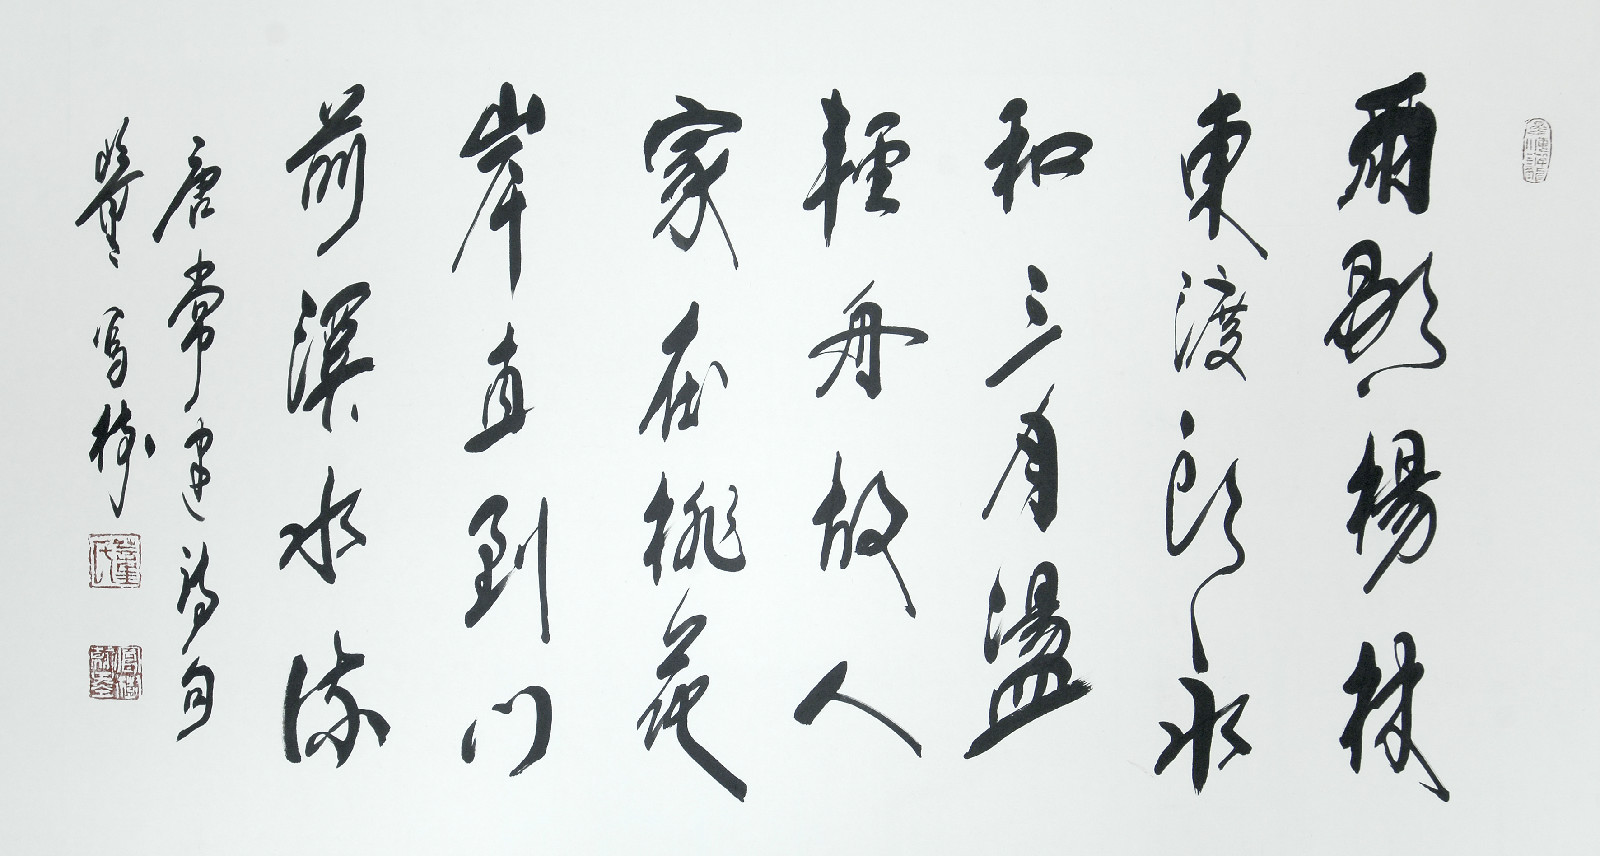 雨歇楊林
東渡頭永
和三月盪
輕舟故人
家在桃花
岸直到門
前溪水流
唐常建詩句